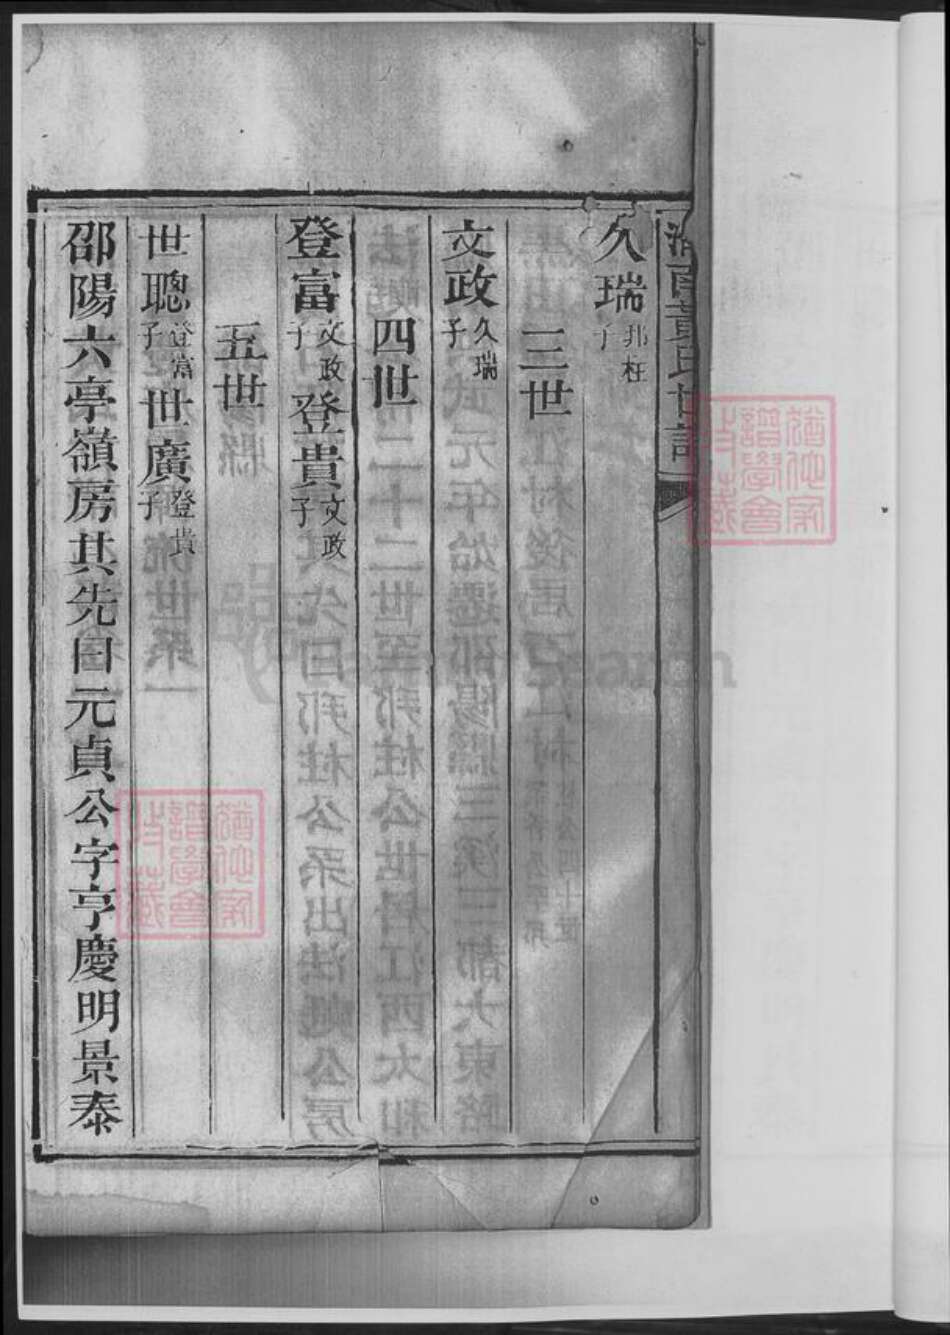 久瑞 邦柱子
三世
文政 久瑞子
四世
登富 文政子 登貴 文政子
五世
世聰 登富子 世廣 登貴子
邵陽六亭嶺房其先曰元貞公字亨慶明景泰